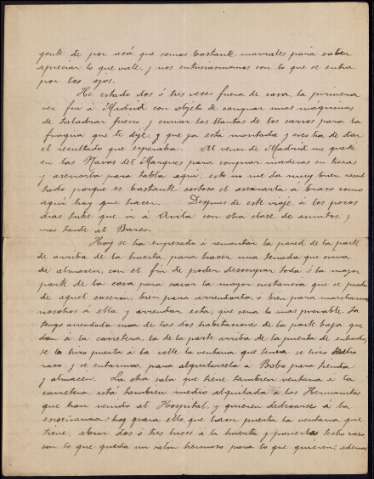 gente de por acá que somos bastante morrales para saber
apreciar lo que vale, y nos entusiasmamos con lo que se entra
por los ojos.
He estado dos ó tres veces fuera de casa la primera
vez fui á Madrid con objeto de comprar unas máquinas
de taladrar fierro y curvar las llantas de los carros para la
fragua que te dije y que ya está montada y no ha de dar
el resultado que esperaba. Al venir de Madrid me quedé
en las Navas del Marques para comprar maderas en
y aserrarla para tabla aquí, esto no me da muy buen resul
tado porque es bastante costoso el aserrarla á brazo como
aquí hay que hacer. Despues de este viaje á los pocos
dias tube que ir á Avila con otra clase de asuntos, y
mas tarde al Barco.
Hoy se ha empezado á remontar la pared de la parte
de arriba de la huerta, para hacer una tenada que sirva
de almacen, con el fin de poder desocupar toda ó la mayor
parte de la casa para sacar la mayor sustancia que se pueda
de aquel caseron, bien para arrendarla ó bien para marcharnos
nosotros á ella y arrendar esta, que sería lo mas probable. Ya
tengo arrendada una de las dos habitaciones de la parte baja que
dan á la carretera, la de la parte arriba de la puerta de entrada,
se la hizo puerta á la calle la ventana que tenía se hizo
raso y se entarimó, para alquilarsela á Bobo para tienda
y almacen. La otra sala que tiene tambien ventana á la
carretera está tambien medio alquilada á las Hermanitas
que han venido al Hospital, y quieren dedicarse á la
enseñanza; hay para ello que hacer puerta la ventana que
tiene, abrir dos ó tres luces á la huerta y ponerla techo raso
con lo que queda un salón hermoso para lo que quieren; ademas